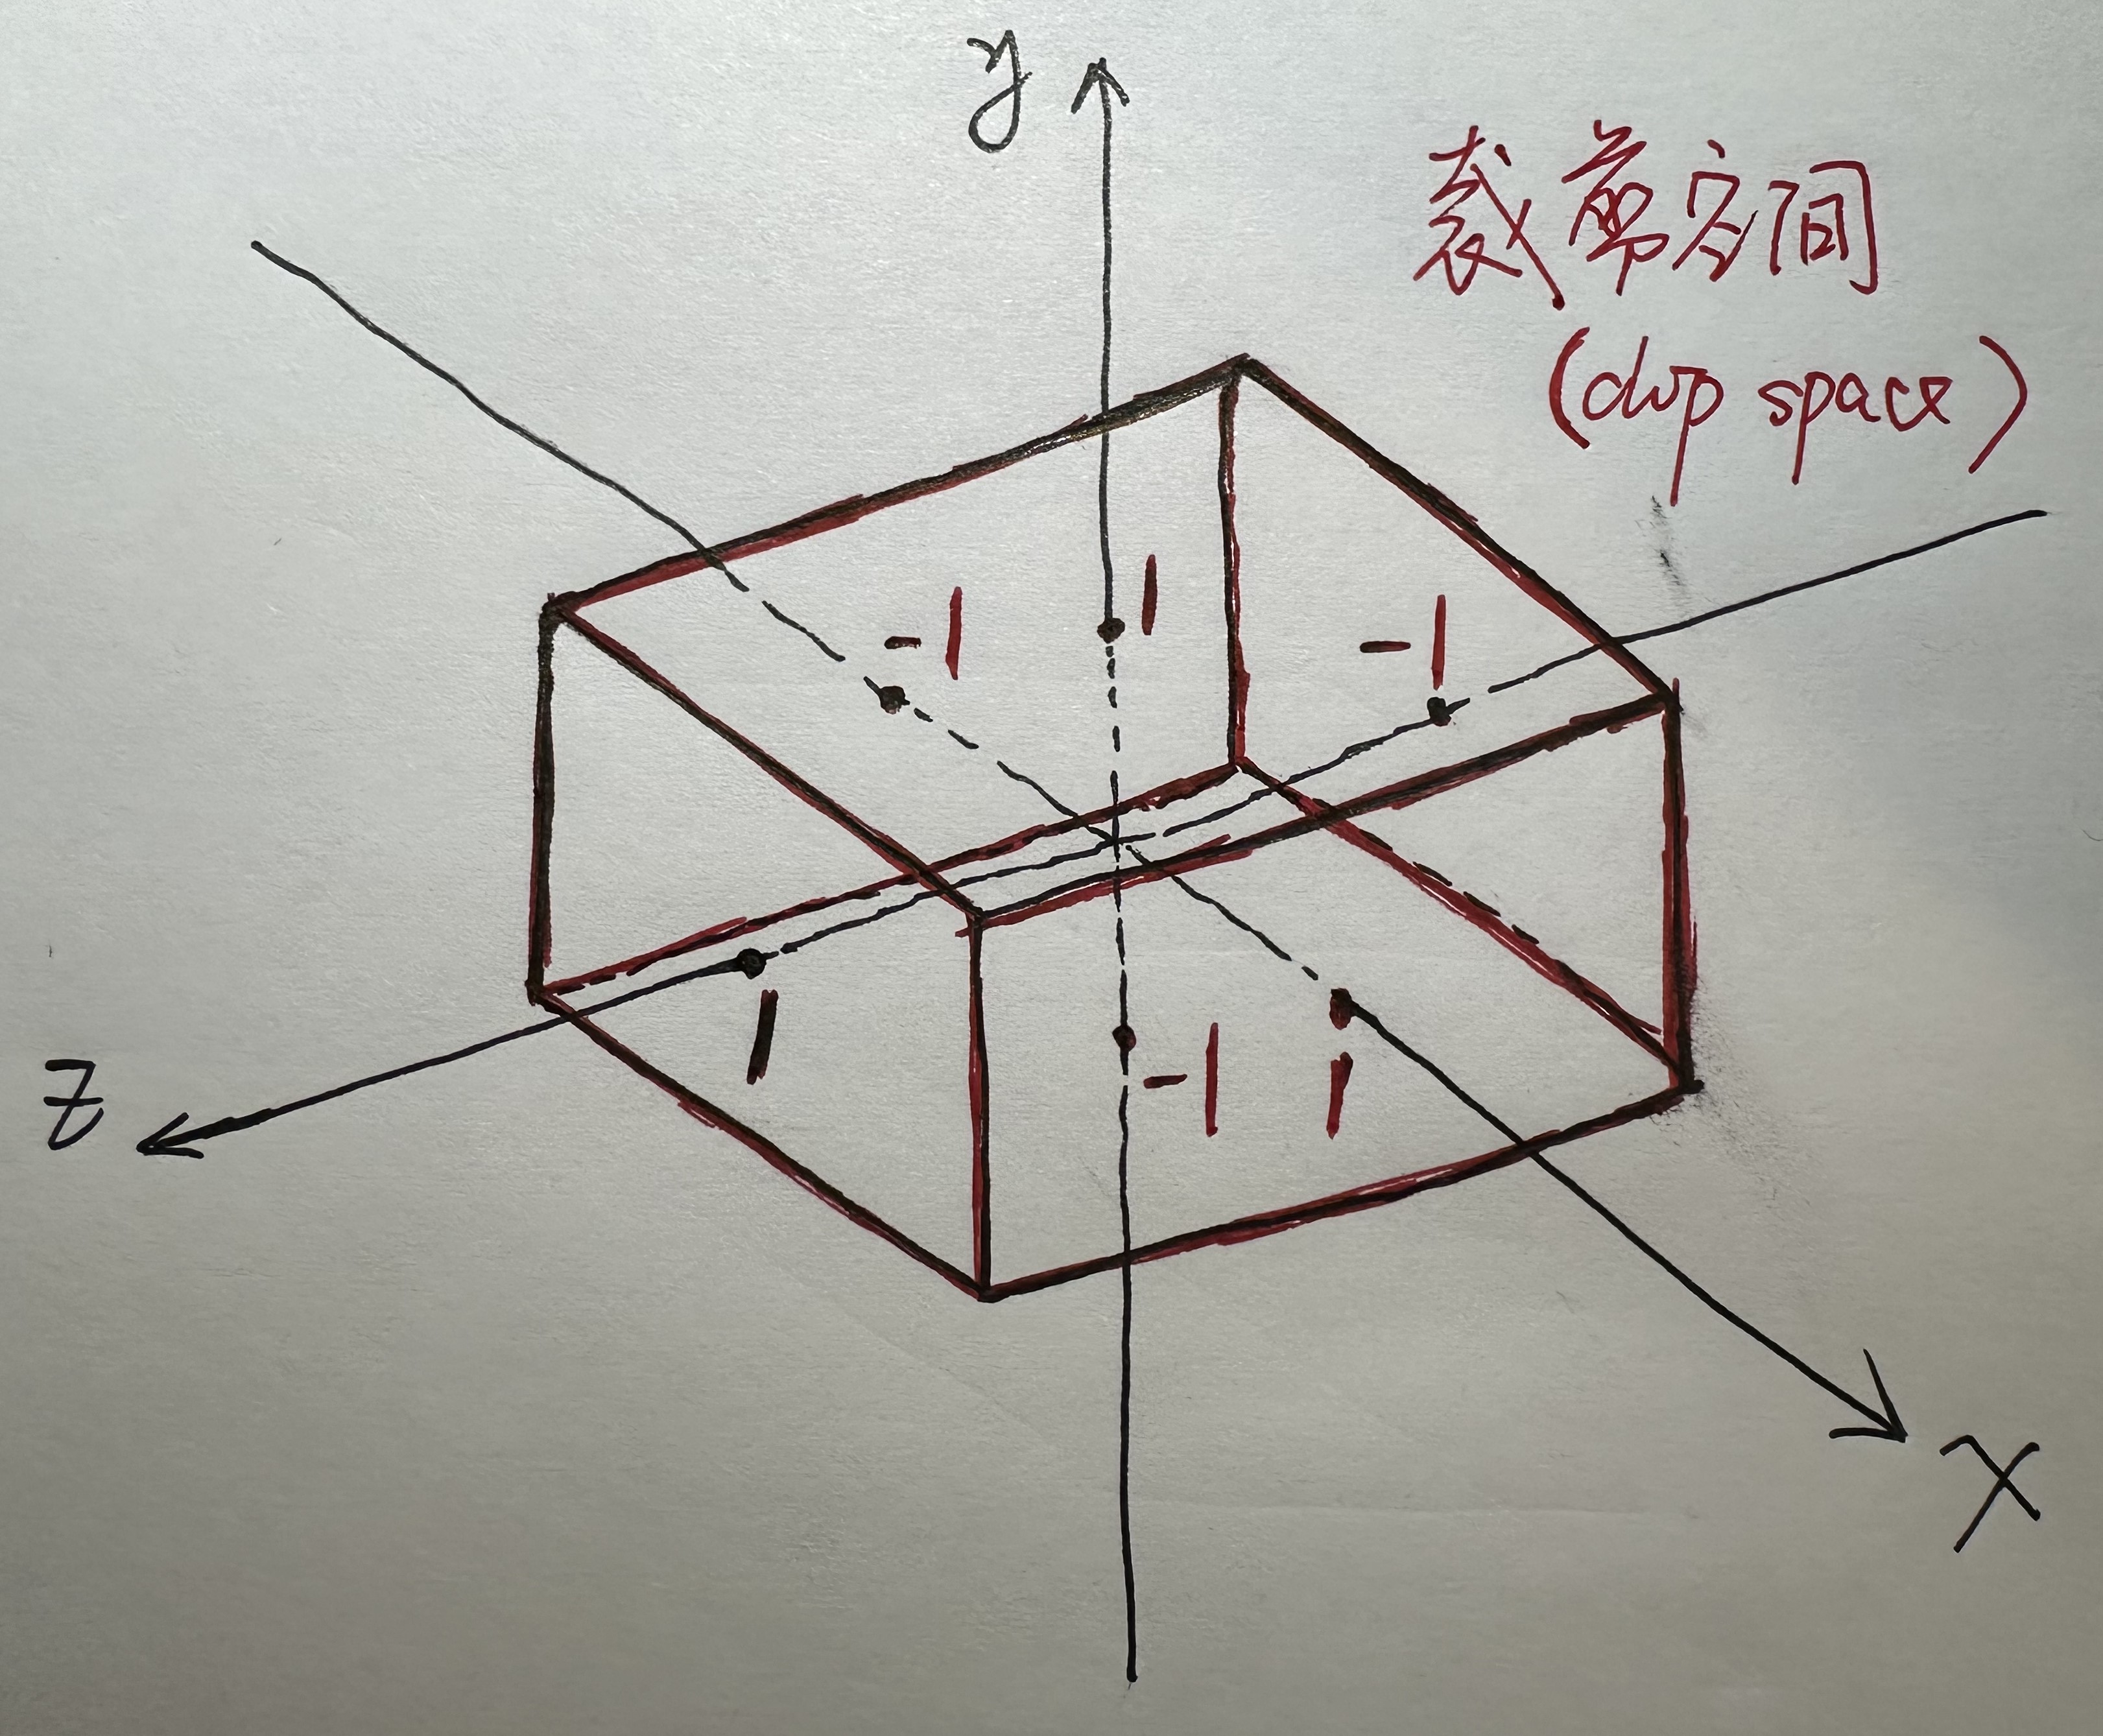 y
裁剪空间
(clip space)
-1
1
-1
1
-1
1
z
x